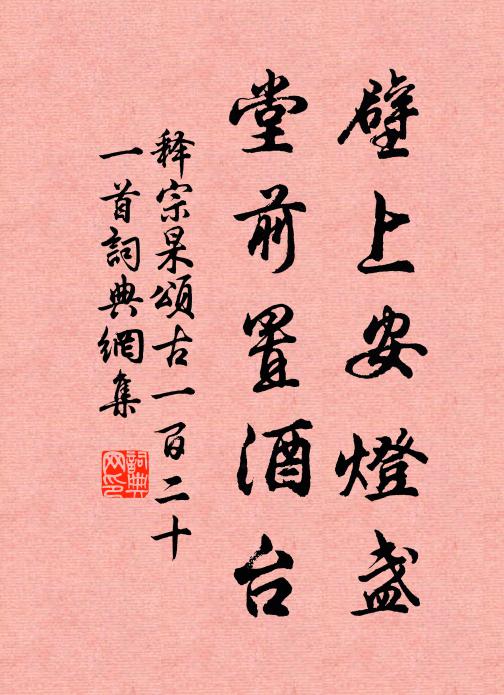 壁上安燈盞
堂前置酒台
释宗杲頌古一百二十
一首詞典網集
詞典网印